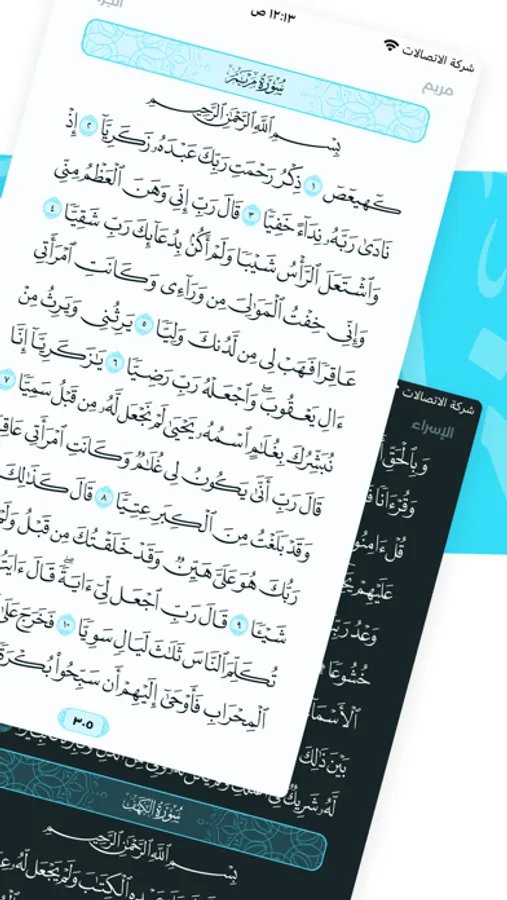 شركة الاتصالات ١٢:١٣ ص
مريم
سُورَةُ مَرْيَمَ
بِسْمِ ٱللَّهِ ٱلرَّحْمَٰنِ ٱلرَّحِيمِ
كٓهيعٓصٓ ١ ذِكْرُ رَحْمَتِ رَبِّكَ عَبْدَهُۥ زَكَرِيَّآ ٢ إِذْ
نَادَىٰ رَبَّهُۥ نِدَآءً خَفِيًّا ٣ قَالَ رَبِّ إِنِّى وَهَنَ ٱلْعَظْمُ مِنِّى
وَٱشْتَعَلَ ٱلرَّأْسُ شَيْبًا وَلَمْ أَكُنۢ بِدُعَآئِكَ رَبِّ شَقِيًّا ٤
وَإِنِّى خِفْتُ ٱلْمَوَٰلِىَ مِن وَرَآءِى وَكَانَتِ ٱمْرَأَتِى
عَاقِرًا فَهَبْ لِى مِن لَّدُنكَ وَلِيًّا ٥ يَرِثُنِى وَيَرِثُ مِنْ
ءَالِ يَعْقُوبَ ۖ وَٱجْعَلْهُ رَبِّ رَضِيًّا ٦ يَٰزَكَرِيَّآ إِنَّا
نُبَشِّرُكَ بِغُلَٰمٍ ٱسْمُهُۥ يَحْيَىٰ لَمْ نَجْعَل لَّهُۥ مِن قَبْلُ سَمِيًّا ٧
قَالَ رَبِّ أَنَّىٰ يَكُونُ لِى غُلَٰمٌ وَكَانَتِ ٱمْرَأَتِى
وَقَدْ بَلَغْتُ مِنَ ٱلْكِبَرِ عِتِيًّا ٨ قَالَ كَذَٰلِكَ
رَبُّكَ هُوَ عَلَىَّ هَيِّنٌ وَقَدْ خَلَقْتُكَ مِن قَبْلُ
شَيْـًٔا ٩ قَالَ رَبِّ ٱجْعَل لِّىٓ ءَايَةً ۚ قَالَ
تُكَلِّمَ ٱلنَّاسَ ثَلَٰثَ لَيَالٍ سَوِيًّا ١٠ فَخَرَجَ
ٱلْمِحْرَابِ فَأَوْحَىٰٓ إِلَيْهِمْ أَن سَبِّحُوا۟ بُكْرَةً
٣٠٥
شركة الاتصالات
الإسراء
وَبِٱلْحَقِّ
وَقُرْءَانًا
قُلْ ءَامِنُوا۟
عَلَيْهِمْ
وَعْدُ
خُشُوعًا
ٱلْأَسْمَآءُ
بَيْنَ ذَٰلِكَ
لَّهُۥ شَرِيكٌ
سُورَةُ الكَهْفِ
بِسْمِ ٱللَّهِ ٱلرَّحْمَٰنِ ٱلرَّحِيمِ
عَبْدِهِ ٱلْكِتَٰبَ وَلَمْ يَجْعَل لَّهُۥ